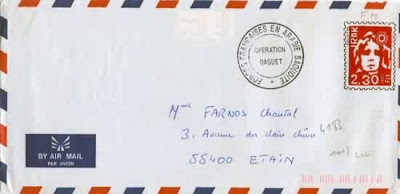 FORCES FRANÇAISES EN ARABIE SAOUDITE
OPERATION
DAGUET
2.30
Mme FARNOS Chantal
3, Avenue des clairs chênes
55400 ETAIN
BY AIR MAIL
PAR AVION